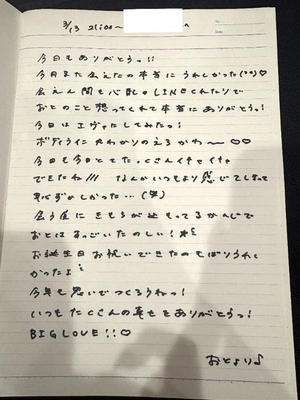 3/13 21:00〜 へ
今日もありがとうっ!!
今月また会えたの本当にうれしかった(^^)♡
会えん間も心配のLINEくれたりで
おとのこと想ってくれて本当にありがとうっ!
今日はエヴァにしてみたっ!
ボディラインに丸わかりのえろかわ〜♡♡
今日も今日とてたっくさんイチャイチャ
できたね/// なんかいつもより感じてしまって
恥ずかしかった…(笑)
会う度にきもちが近もってるかんじで
おとはすっごいたのしい!
お誕生日お祝いできたのもばりうれし
かったよ
今年も思いでつくろうねっ!
いつもたくさんの幸せをありがとうっ!
BIG LOVE!!♡
おとより♪